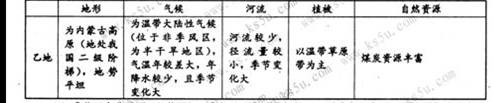 地形 气候 河流 植被 自然资源
乙地
为内蒙古高
原（地处我
国二级阶
梯），地势
平坦
为温带大陆性气候
（位于非季风区，
为半干旱地区），
气温年较差大，年
降水较少，且季节
变化大
河流较少，
径流量较
小，季节变
化大
以温带草原
带为主
煤炭资源丰富